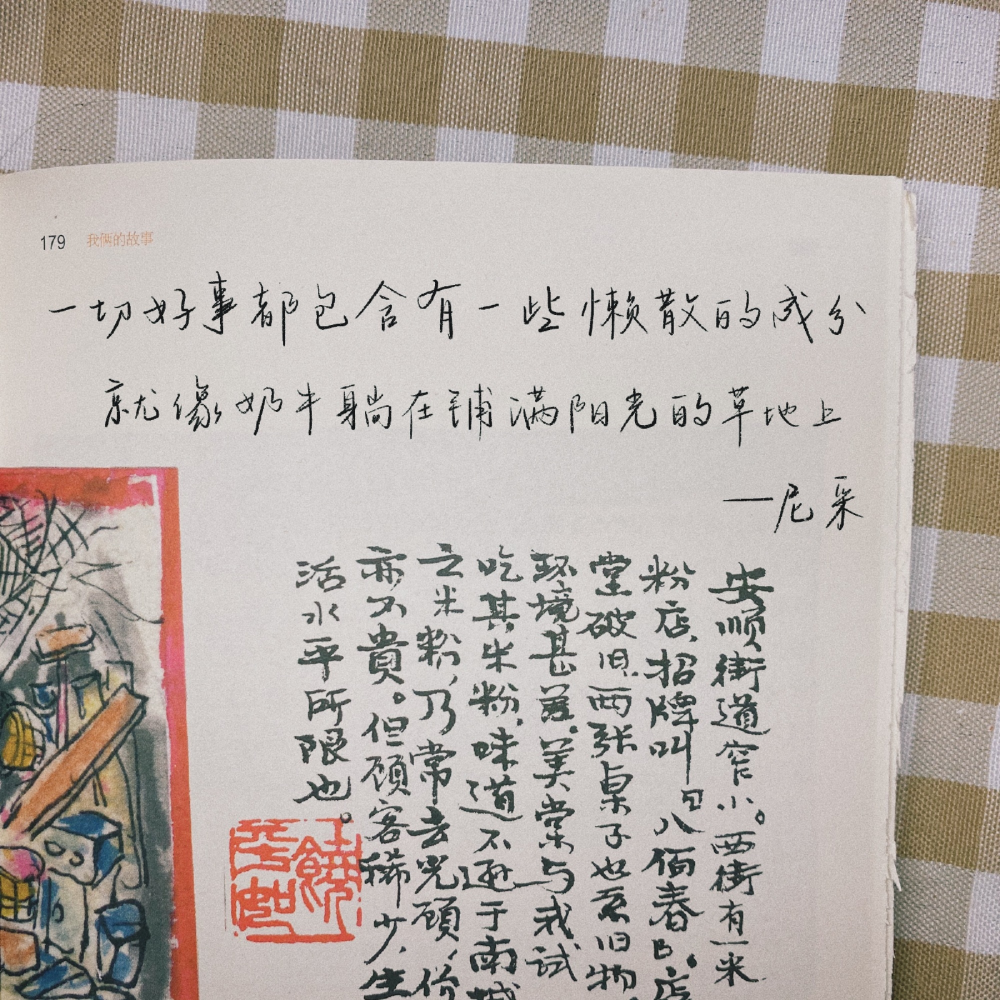 179 我俩的故事
一切好事都包含有一些懒散的成分
就像奶牛躺在铺满阳光的草地上
—尼采
安顺街道窄小。西街有一米
粉店,招牌叫『八佰春』。店
堂破旧,两张桌子也系旧物,
环境甚差。美棠与我试
吃其米粉,味道不逊于南城
之米粉,乃常去光顾,价
亦不貴。但顾客稀少,生
活水平所限也。
饶平如